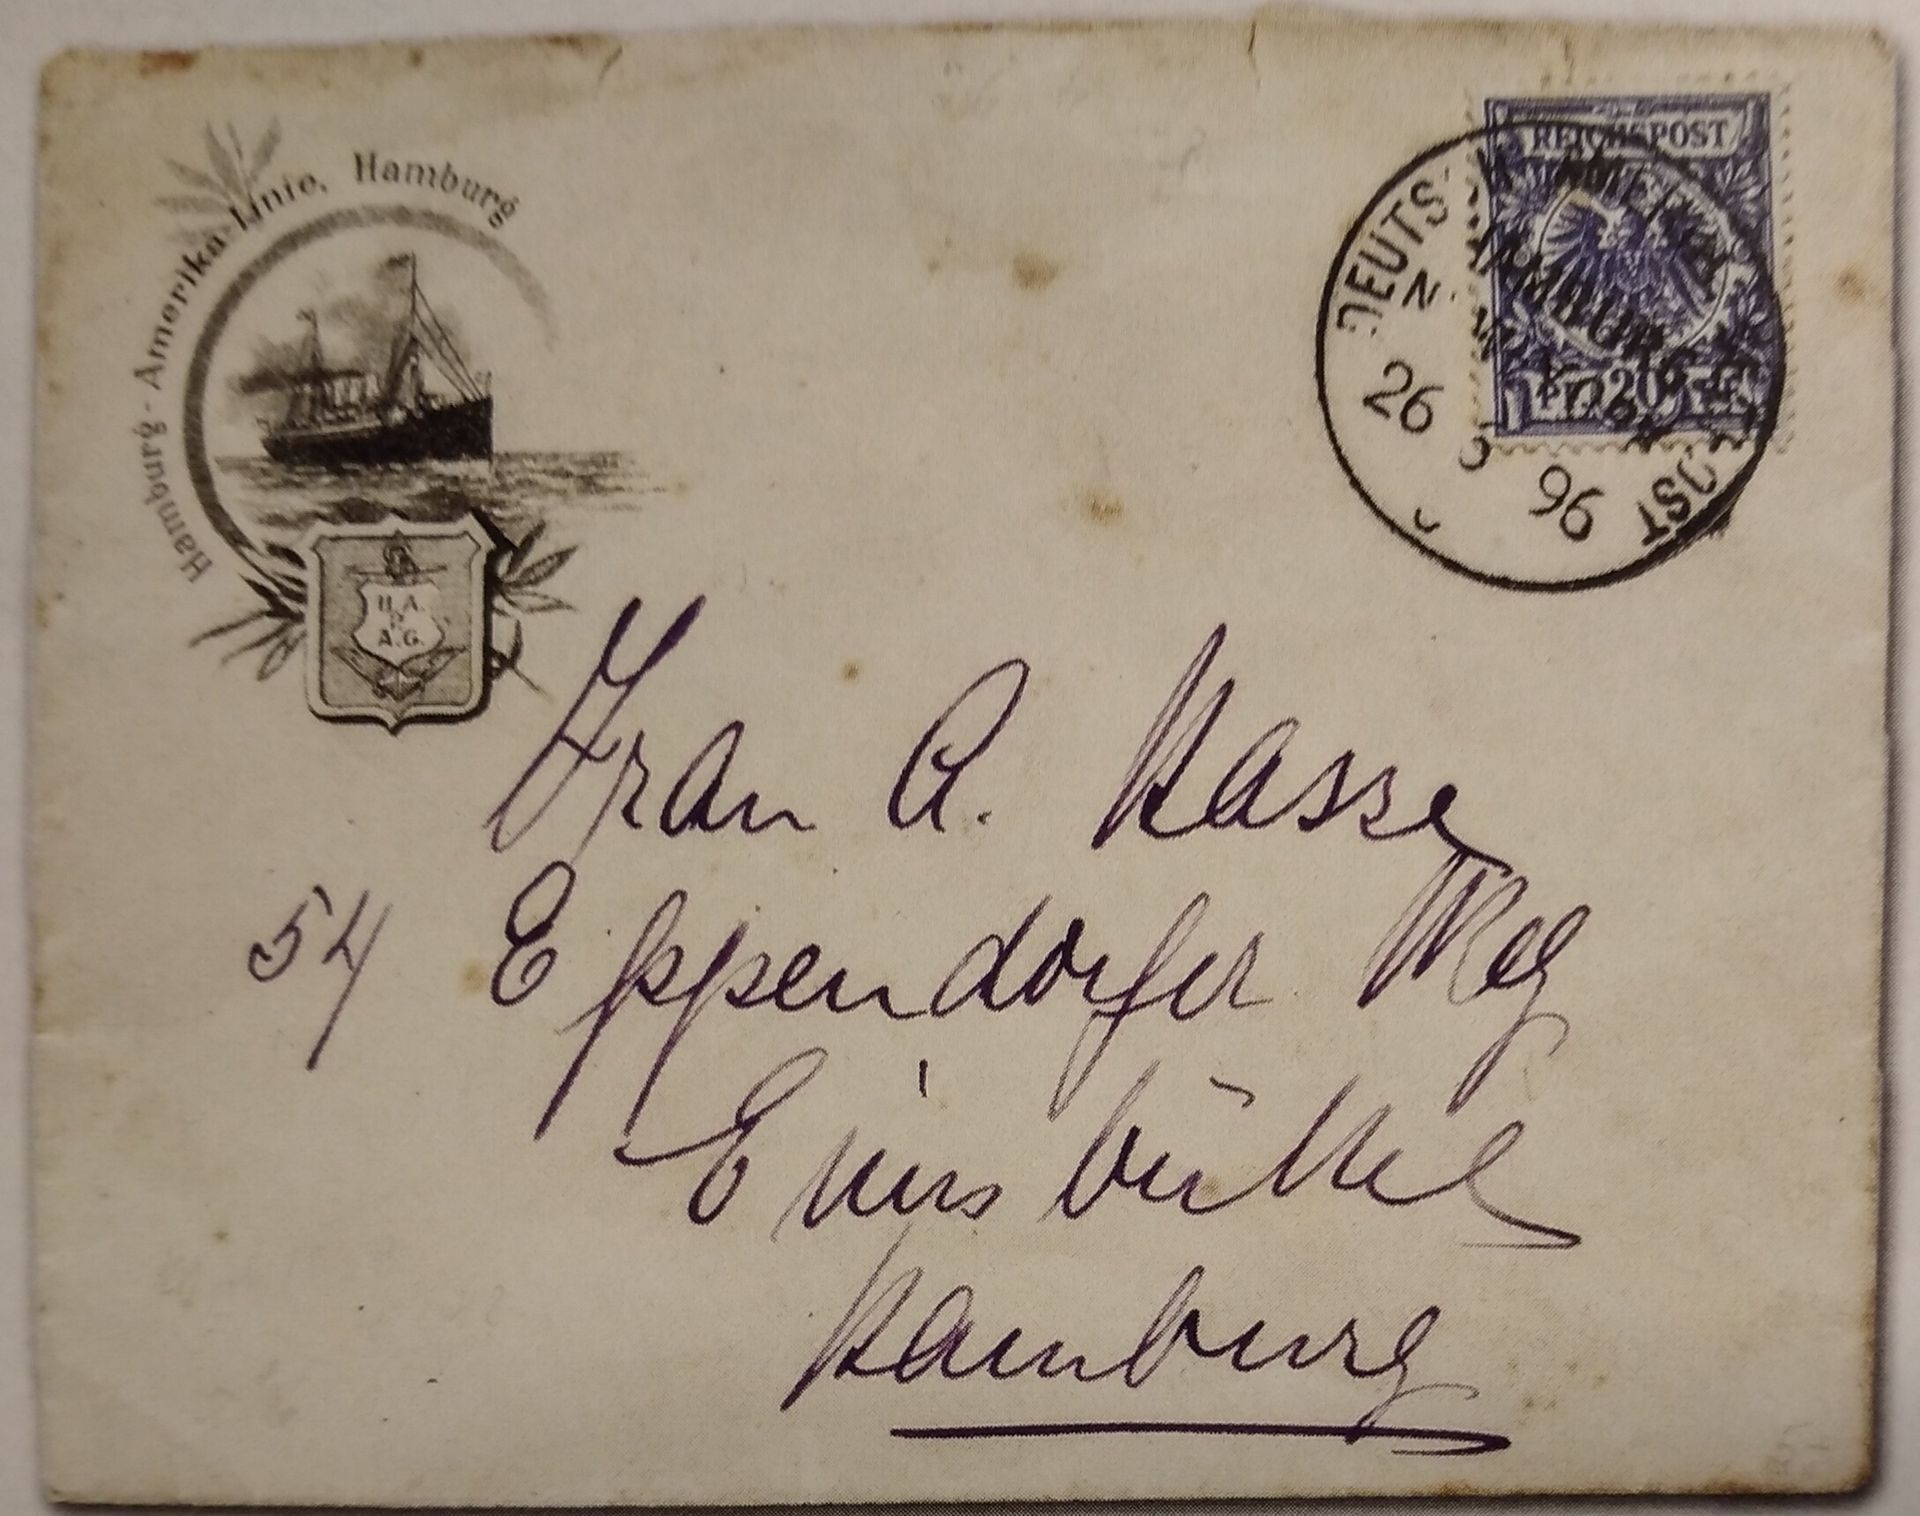 Hamburg-Amerika-Linie, Hamburg
H.A.
P.
A.G.
REICHSPOST
20
DEUTS
HAMBURG
26
96
POST
Frau A. Hasse
54 Eppendorfer Weg
Eimsbüttel
Hamburg